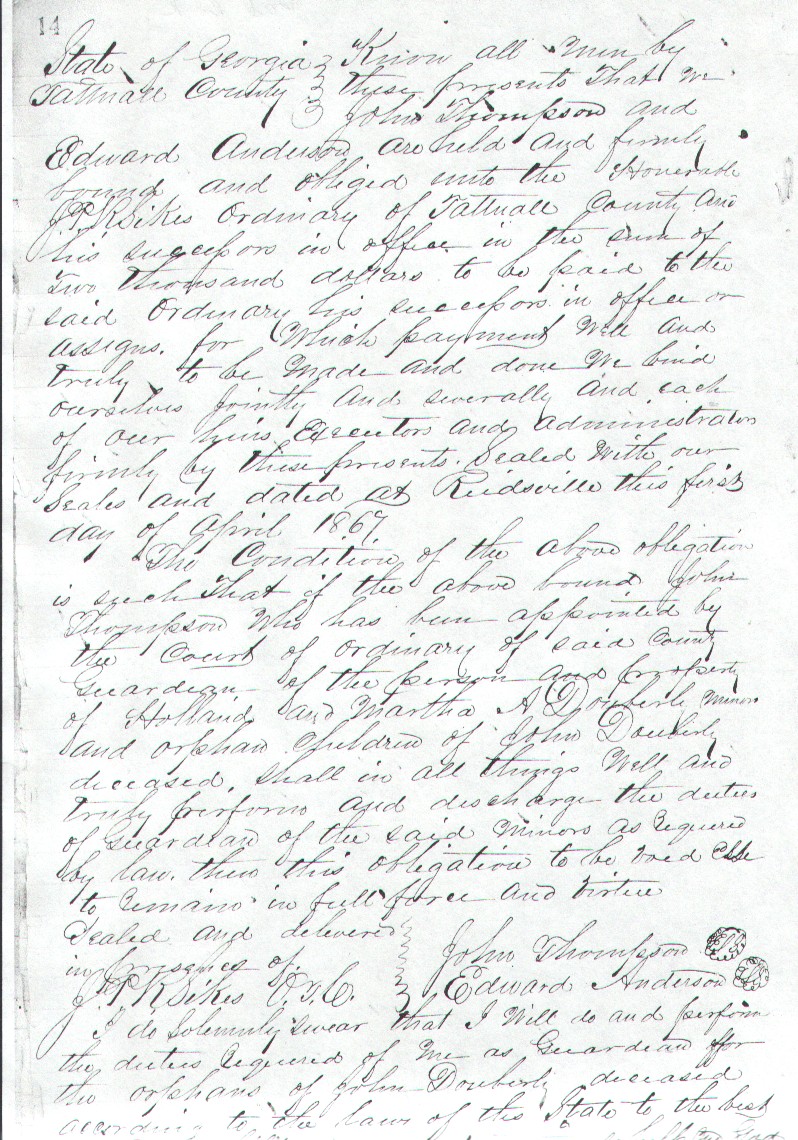 14
State of Georgia } Know all men by
Tattnall County } these presents That we
John Thompson and
Edward Anderson are held and firmly
bound and obliged unto the Honerable
J.P.R. Sikes Ordinary of Tattnall County and
his successors in office in the sum of
Two thousand dollars to be paid to the
said Ordinary his successors in office or
assigns. for Which payment Well and
truly to be Made and done We bind
ourselves Jointly and severally and each
of our heirs Executors and administrators
firmly by these presents. Sealed With our
Seales and dated at Reidsville this first
day of April 1867.
The Condition of the above obligation
is such That if the above bound John
Thompson Who has been appointed by
the Court of ordinary of said County
Guardian of the person and property
of Holland and Martha A Douberly minors
and orphan Children of John Douberly
deceased, Shall in all things Well and
truly perform and discharge the duties
of Guardian of the said Minors as Required
by law. then this obligation to be void else
to Remain in full force and Virtue
Sealed and delivered }
in presence of } John Thompson LS
J.P.R. Sikes O.T.C. } Edward Anderson LS
I do Solemnly Swear that I Will do and perform
the duties Required of Me as Guardian ffor
the orphans of John Douberly deceased
according to the laws of this State to the best